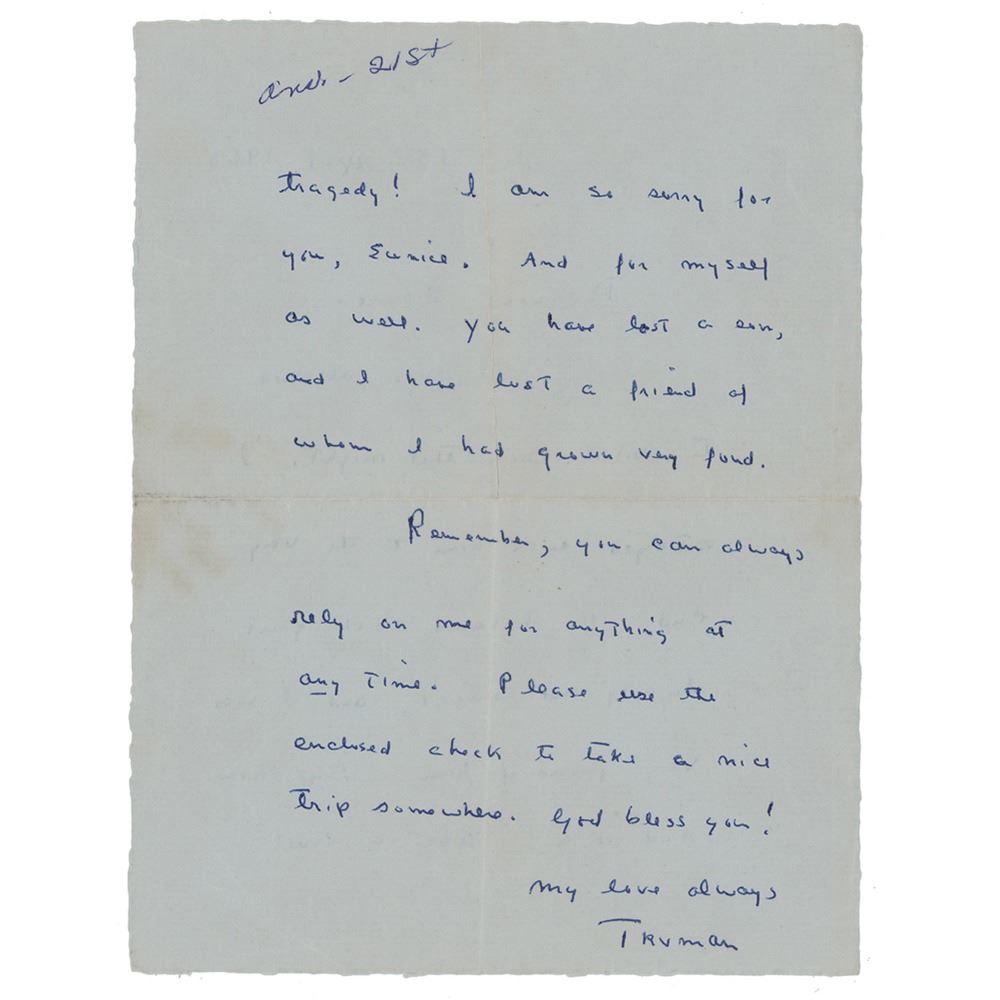 ans. - 21st
tragedy! I am so sorry for
you, Eunice. And for myself
as well. You have lost a son,
and I have lost a friend of
whom I had grown very fond.
Remember, you can always
rely on me for anything at
any time. Please use the
enclosed check to take a nice
trip somewhere. God bless you!
My love always
Truman